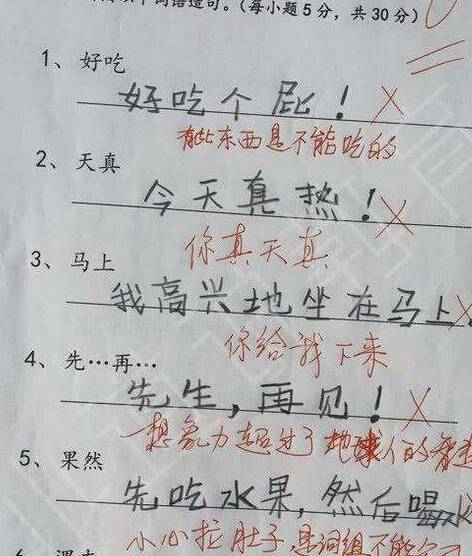 词语造句。(每小题5分，共30分)
1、好吃
好吃个屁！
有些东西是不能吃的
2、天真
今天真热！
你真天真
3、马上
我高兴地坐在马上
你给我下来
4、先…再…
先生，再见！
想象力超过了地球人的
5、果然
先吃水果，然后喝
小心拉肚子 是词组不能